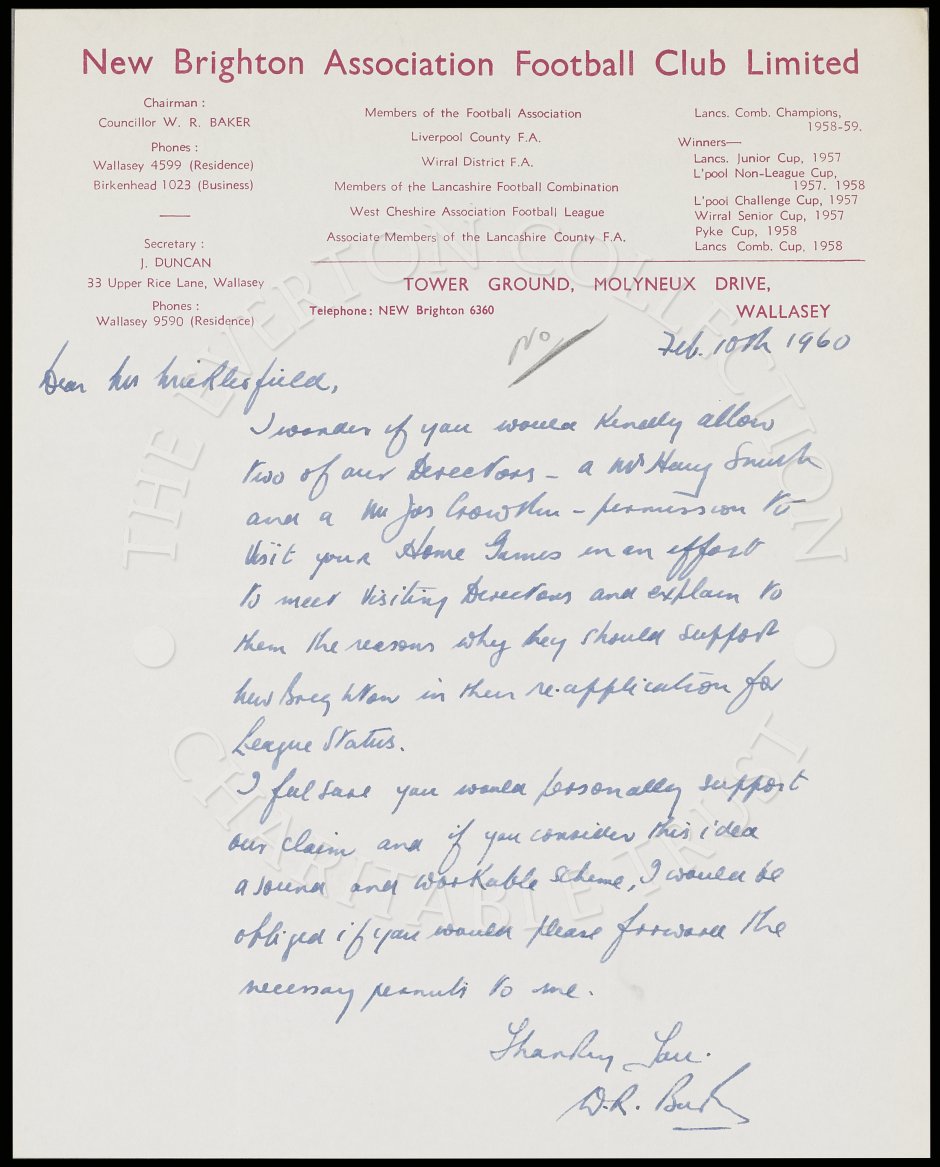 New Brighton Association Football Club Limited
Chairman :
Councillor W. R. BAKER
Phones :
Wallasey 4599 (Residence)
Birkenhead 1023 (Business)
Secretary :
J. DUNCAN
33 Upper Rice Lane, Wallasey
Phones :
Wallasey 9590 (Residence)
Members of the Football Association
Liverpool County F.A.
Wirral District F.A.
Members of the Lancashire Football Combination
West Cheshire Association Football League
Associate Members of the Lancashire County F.A.
Lancs. Comb. Champions,
1958-59.
Winners—
Lancs. Junior Cup, 1957
L'pool Non-League Cup,
1957. 1958
L'pool Challenge Cup, 1957
Wirral Senior Cup, 1957
Pyke Cup, 1958
Lancs Comb. Cup, 1958
TOWER GROUND, MOLYNEUX DRIVE,
Telephone: NEW Brighton 6360
WALLASEY
NO
Feb. 10th 1960
Dear Mr
I wonder if you would kindly allow
two of our Directors - a Mr Harry Smith
and a Mr Jas Crowther - permission to
visit your Home Games in an effort
to meet visiting Directors and explain to
them the reasons why they should support
New Brighton in their re-application for
League Status.
I feel sure you would personally support
our claim and if you consider this idea
a sound and workable scheme, I would be
obliged if you would please forward the
necessary permits to me.
Thanking You.
W.R. Baker
THE EVERTON COLLECTION
CHARITABLE TRUST